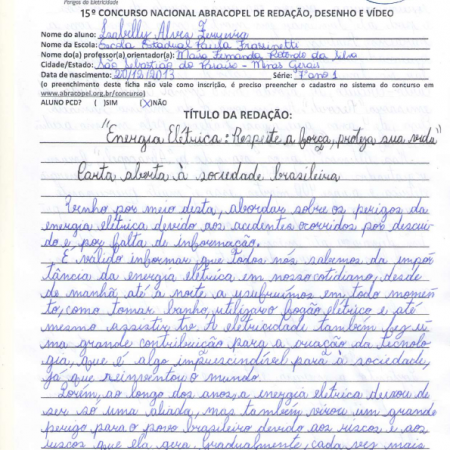 Perigos da Eletricidade
15º CONCURSO NACIONAL ABRACOPEL DE REDAÇÃO, DESENHO E VÍDEO
Nome do aluno: Isabelly Alves Ferreira
Nome da Escola: Escola Estadual Paula Frassinetti
Nome do(a) professor(a) orientador(a): Maria Fernanda da Silva
Cidade/Estado: São Sebastião do Paraíso - Minas Gerais
Data de nascimento: 20/12/2013 Série: 7º ano 1
(o preenchimento desta ficha não vale como inscrição, é preciso preencher o cadastro no sistema do concurso em
www.abracopel.org.br/concurso)
ALUNO PCD? ( )SIM (X)NÃO
TÍTULO DA REDAÇÃO:
"Energia Elétrica: Respeite a força, proteja sua vida"
Carta aberta à sociedade brasileira
Venho por meio desta, abordar sobre os perigos da
energia elétrica devido aos acidentes ocorridos por descui-
do e por falta de informação.
É válido informar que todos nós sabemos da impor-
tância da energia elétrica em nosso cotidiano, desde
de manhã, até à noite a usufruímos em todo momen-
to, como tomar banho, utilizar o fogão elétrico e até
mesmo assistir tv. A eletricidade também fez u-
ma grande contribuição para a criação da tecnolo-
gia, que é algo imprescindível para à sociedade,
já que reinventou o mundo.
Porém, ao longo dos anos, a energia elétrica deixou de
ser só uma aliada, mas também virou um grande
perigo para o povo brasileiro devido aos riscos e aos
riscos que ela gera. Gradualmente, cada vez mais